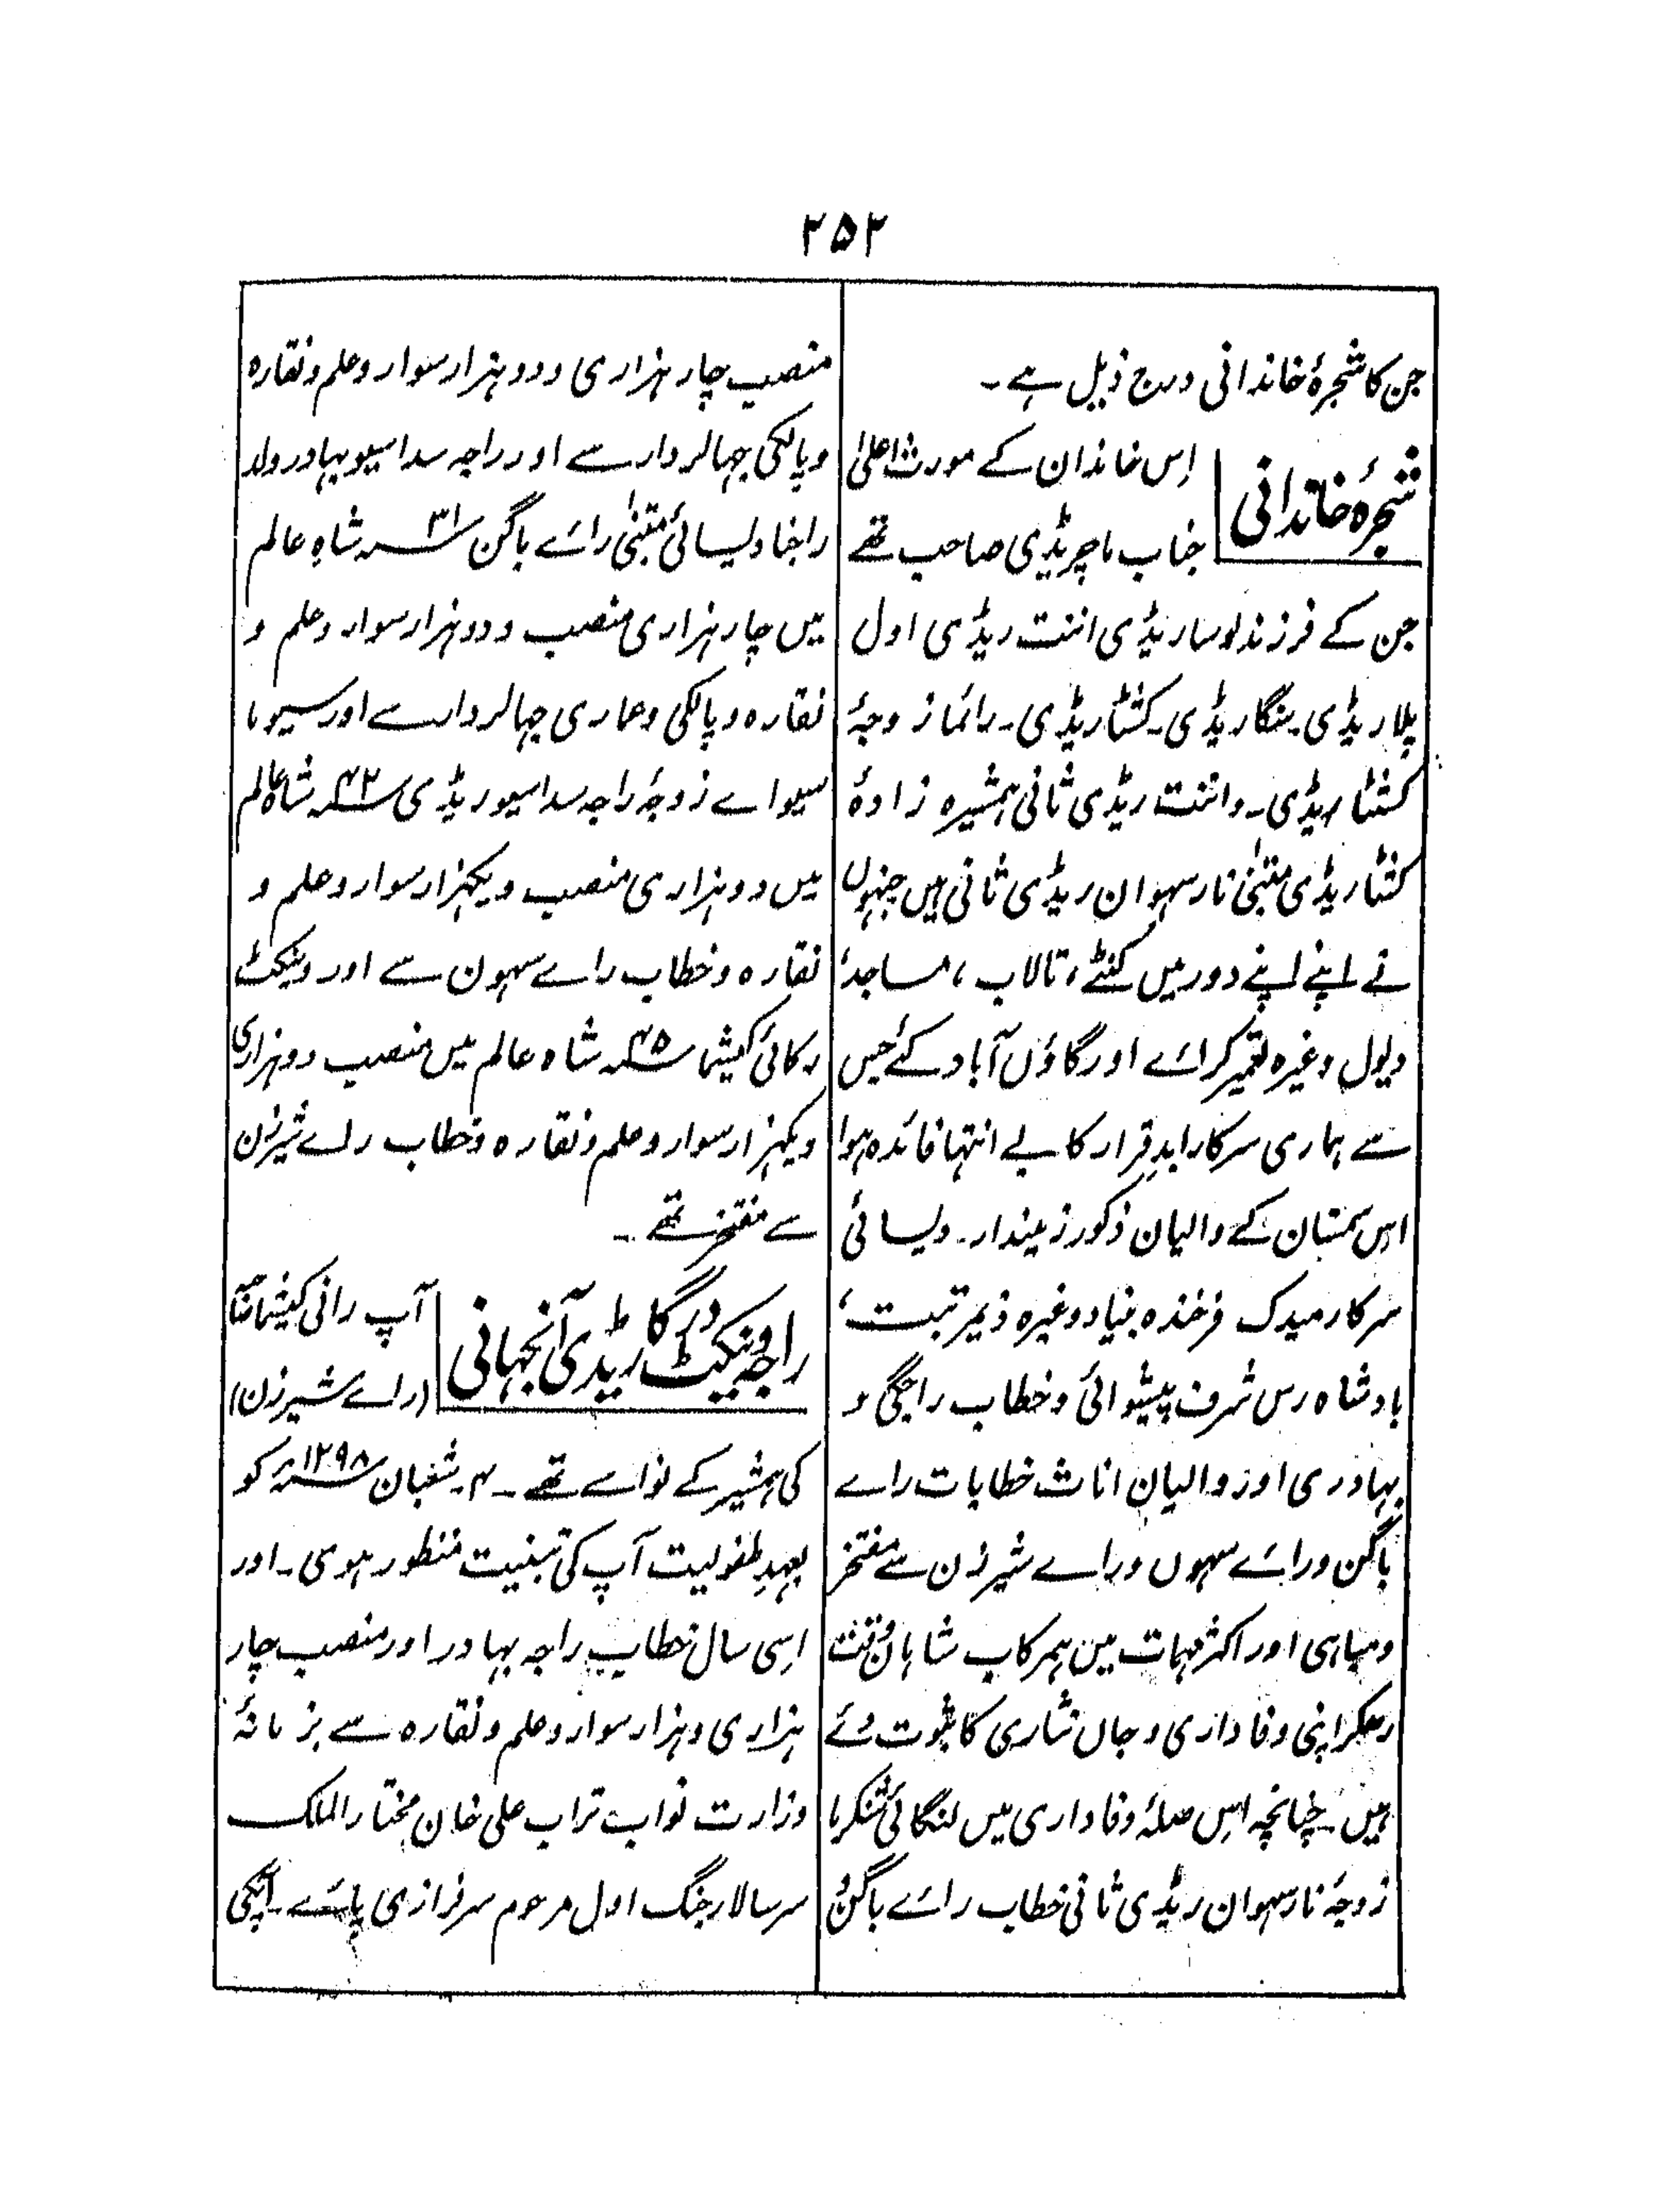 ۲۵۲
جن کا شجرۂ خاندانی درج ذیل ہے۔
شجرۂ خاندانی
اِس خاندان کے مورث اعلیٰ
جناب ماچریڈی صاحب تھے
جن کے فرزند لوسا ریڈی اننت ریڈی اول
پلا ریڈی۔ سنگا ریڈی۔ کشٹا ریڈی۔ رائما زوجۂ
کشٹا ریڈی۔ و اننت ریڈی ثانی ہمشیرہ زادۂ
کشٹا ریڈی متبنیٰ نارسہوان ریڈی ثانی ہیں جنہوں
نے اپنے اپنے دور میں کنٹے، تالاب، مساجد،
دیول وغیرہ تعمیر کرائے اور گاؤں آباد کئے جس
سے ہماری سرکار ابد قرار کا بے انتہا فائدہ ہوا
اس سمستان کے والیان ذکور زمیندار۔ دیسائی
سرکار میدک فرخندہ بنیاد وغیرہ ذیمرتبت،
بادشاہ رس شرف پیشوائی و خطاب راجگی و
بہادری اور والیان اناث خطابات راے
باگن و رائے سہوں و راے شیرزن سے مفتخر
و مباہی اور اکثر مہمات مین ہمرکاب شاہان وقت
رھکر اپنی وفاداری و جاں نثاری کا ثبوت دئے
ہیں۔ چنانچہ اس صلۂ وفاداری میں لنگائی شنکرما
زوجۂ نارسہوان ریڈی ثانی خطاب رائے باگن و
منصب چار ہزاری و دو ہزار سوار و علم و نقارہ
و پالکی جہالردار سے اور راجہ سداسیو بہادر ولد
راجنا دیسائی متبنیٰ رائے باگن ۳۱؁ شاہِ عالم
میں چار ہزاری منصب و دو ہزار سوار و علم و
نقارہ و پالکی و عماری جہالردار سے اور سیوما
سیوا اے زوجۂ راجہ سداسیو ریڈی ۴۲؁ شاہ عالم
میں دو ہزاری منصب و یکہزار سوار و علم و
نقارہ و خطاب راے سہون سے اور وینکٹ
رکائی کیشما ۴۵؁ شاہ عالم میں منصب دو ہزاری
و یکہزار سوار و علم و نقارہ و خطاب راے شیرزن
سے مفتخر تھے۔
راجہ وینکٹ درگا ریڈی آنجہانی
آپ رانی کیشما متبنیٰ
(راے شیرزن)
کی ہمشیر کے نواسے تھے۔ ۴۔ شعبان ۱۲۹۸؁ کو
بعہدِ طفولیت آپ کی تبنیت منظور ہوی۔ اور
اِسی سال خطابِ راجہ بہادر اور منصب چار
ہزاری و ہزار سوار و علم و نقارہ سے بزمانۂ
وزارت نواب تراب علی خان مختار الملک
سر سالار جنگ اول مرحوم سرفرازی پائے۔ آپکی